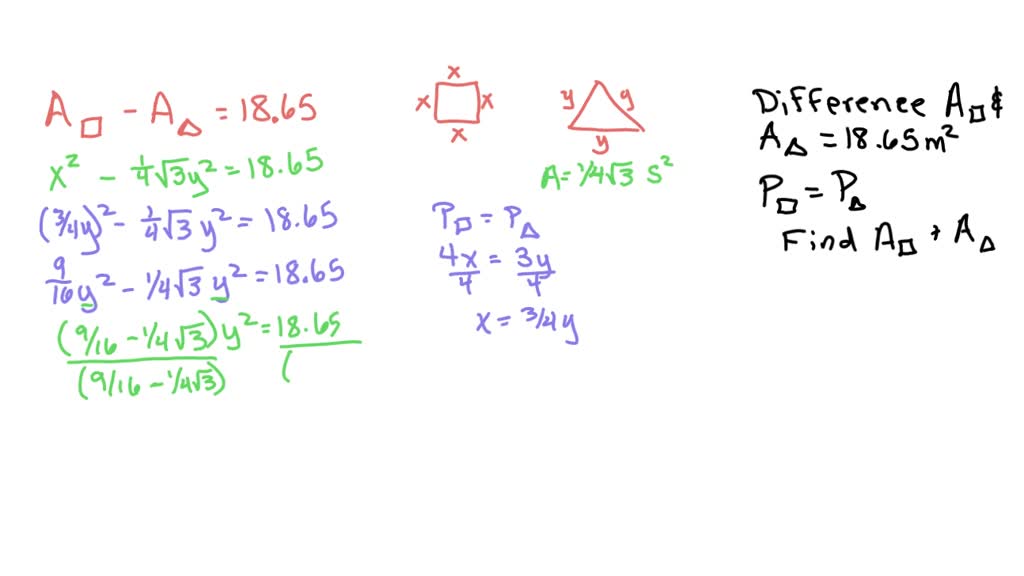 A□ - A△ = 18.65
x² - 1/4√3y² = 18.65
(3/4y)² - 1/4√3 y² = 18.65
9/16y² - 1/4√3 y² = 18.65
(9/16 - 1/4√3)y² = 18.65
(9/16 - 1/4√3) (
x
x x
x
y y
y
A = 1/4√3 s²
P□ = P△
4x = 3y
4 4
x = 3/4y
Difference A□ &
A△ = 18.65m²
P□ = P△
Find A□ + A△